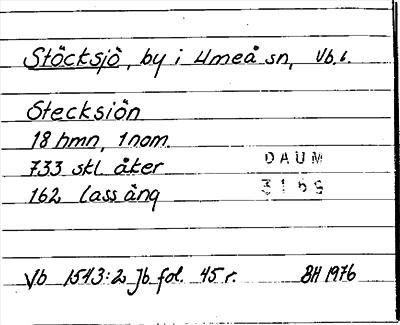 Stöcksjö, by i Umeå sn, Vb.
Stecksiön
18 hmn, 1 nom.
733 skl åker
162 lass äng
DAUM
3169
Vb 1543:2 Jb fol. 45 r. BH 1976